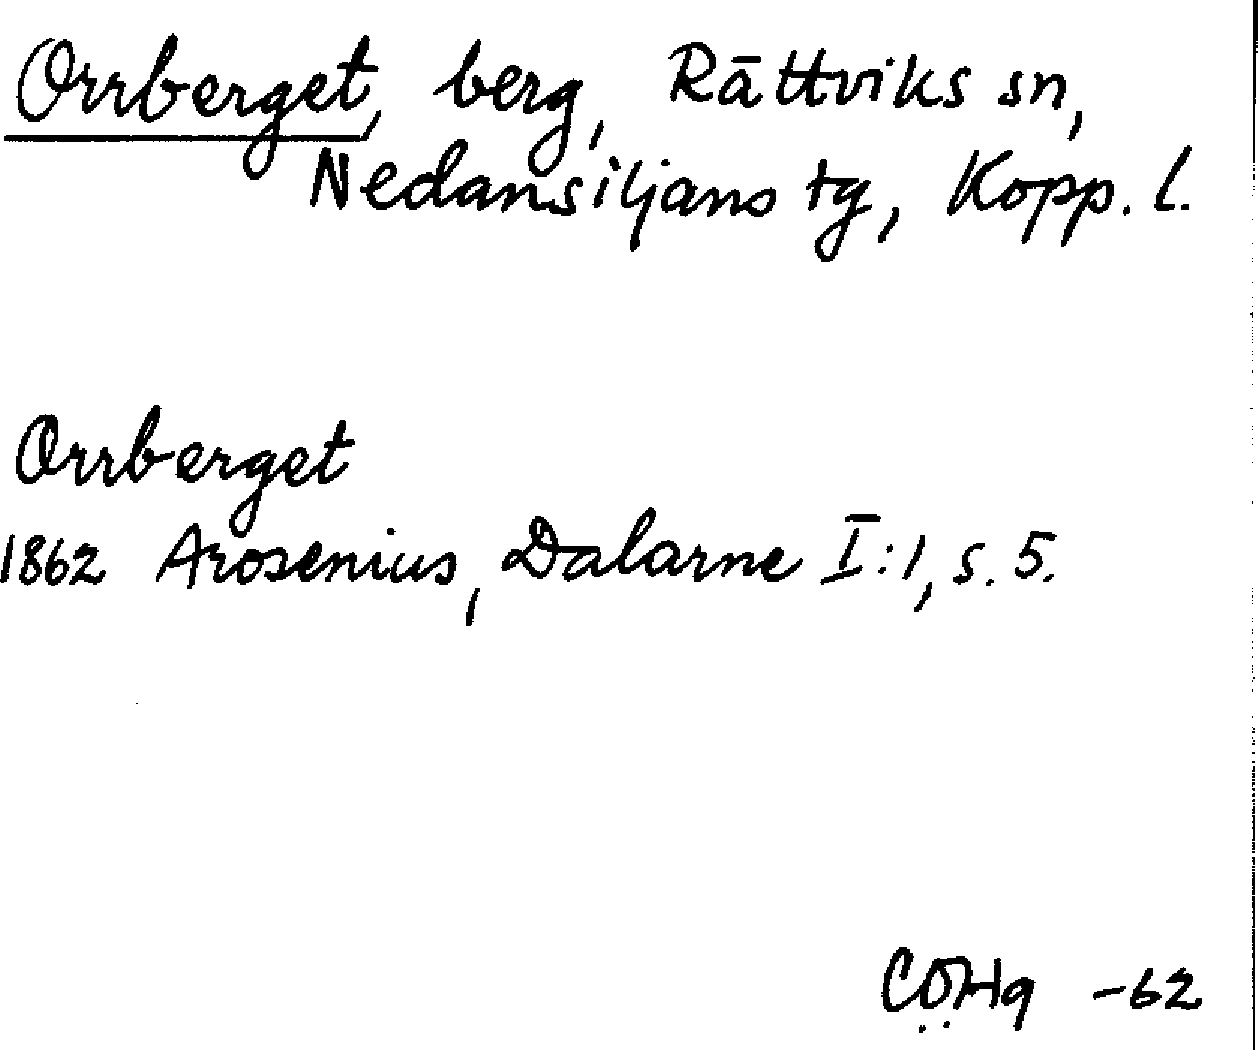 Orrberget, berg, Rättviks sn,
Nedansiljans tg, Kopp. l.
Orrberget
1862 Arosenius, Dalarne I:1, s. 5.
-62